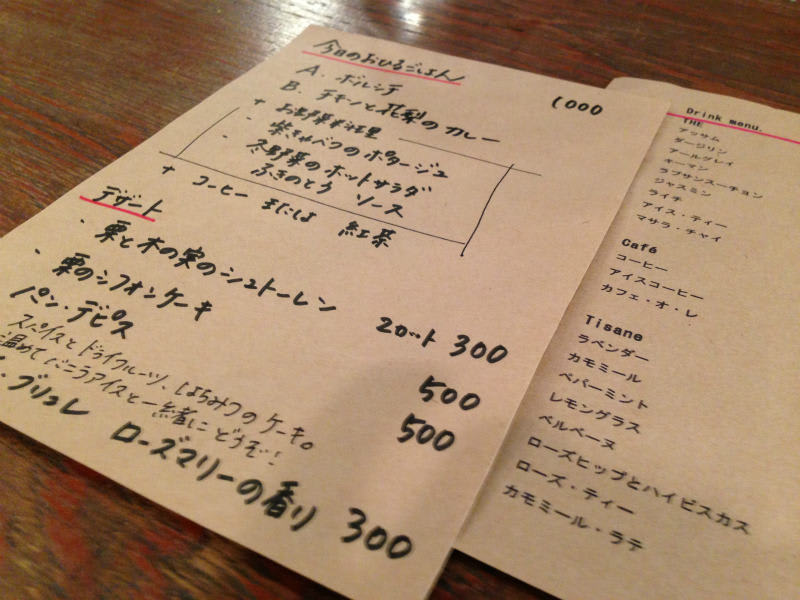 今日のおひるごはん
1000
A. ボルシチ
B. チキンと花梨のカレー
+ お野菜料理
- 紫キャベツのポタージュ
- 冬野菜のホットサラダ
ふきのとう ソース
+ コーヒー または 紅茶
デザート
・栗と木の実のシュトーレン 2カット 300
・栗のシフォンケーキ 500
パン・デピス 500
スパイスとドライフルーツ、はちみつのケーキ。
温めてバニラアイスと一緒にどうぞ!
ブリュレ ローズマリーの香り 300
Drink menu.
THE
アッサム
ダージリン
アールグレイ
キーマン
ラプサンスーチョン
ジャスミン
ライチ
アイス・ティー
マサラ・チャイ
Café
コーヒー
アイスコーヒー
カフェ・オ・レ
Tisane
ラベンダー
カモミール
ペパーミント
レモングラス
ベルベーヌ
ローズヒップとハイビスカス
ローズ・ティー
カモミール・ラテ